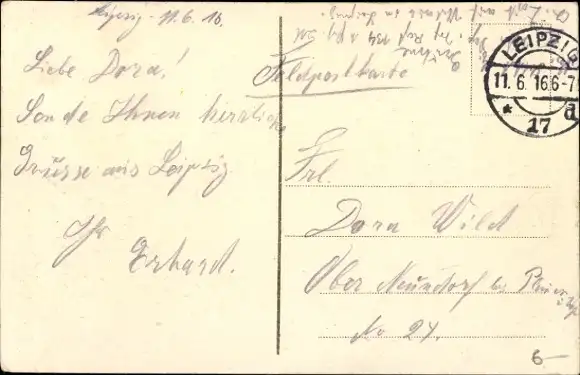 Leipzig 11.6.16.
Liebe Dora!
Sende Ihnen herzliche
Grüsse aus Leipzig
Ihr
Erhard.
Feldpostkarte
LEIPZIG
11.6.16 6-7
* 17 d
Frl.
Dora Wild
Ober Neundorf bei
No 24.
6—